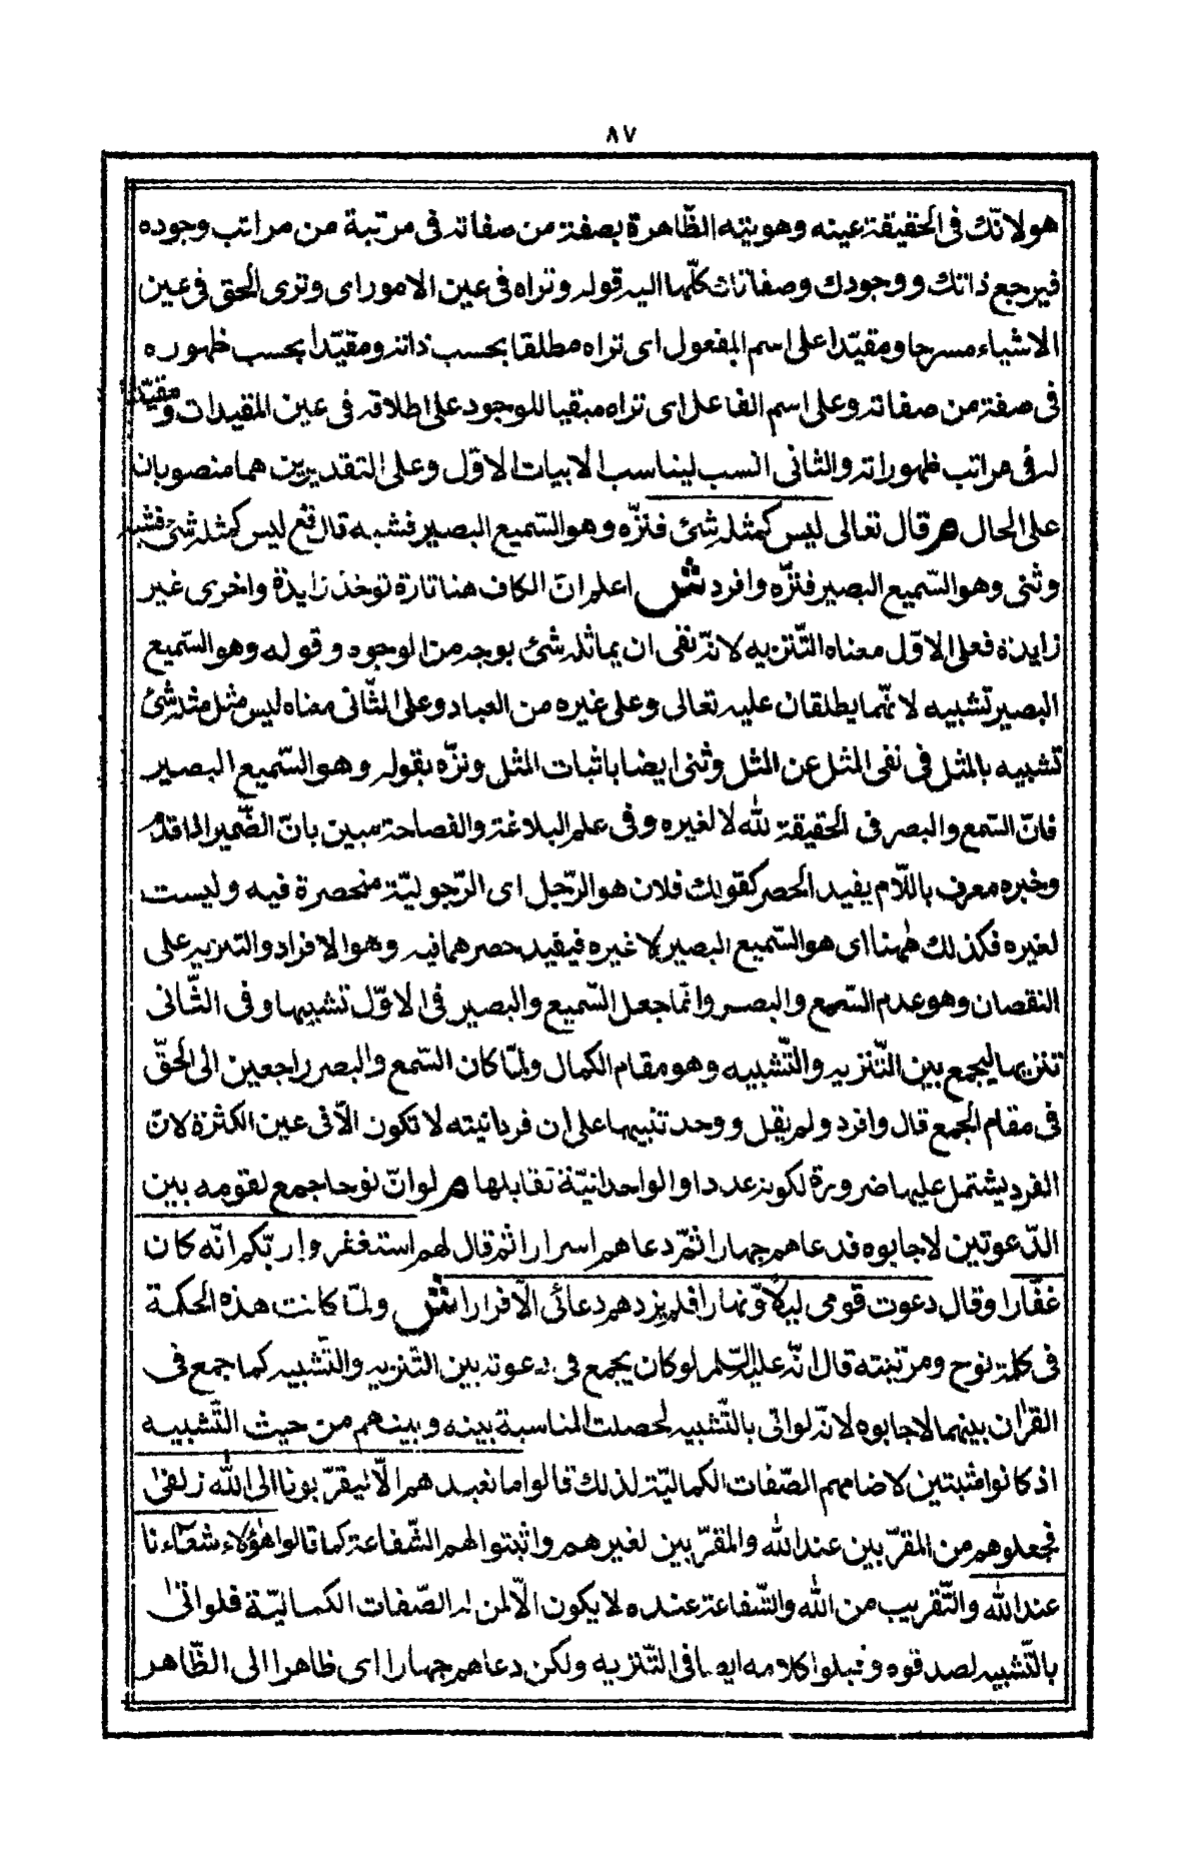 ٨٧
هو لانّك في الحقيقة عينه وهويته الظّاهرة بصفة من صفاته في مرتبة من مراتب وجوده
فيرجع ذاتك ووجودك وصفاتك كلّها اليه قوله وتراه في عين الامور اى وترى الحق في عين
الاشياء مسرحا ومقيّدا على اسم المفعول اى تراه مطلقا بحسب ذاته ومقيّدا بحسب ظهوره
في صفة من صفاته وعلى اسم الفاعل اى تراه مبقيا للوجود على اطلاقه في عين المقيدات ومقيّدا
له في مراتب ظهوراته والثانى انسب ليناسب الابيات الاوّل وعلى التقديرين هما منصوبان
على الحال هر قال تعالى ليس كمثله شئ فنزّه وهو السّميع البصير فشبه قال تع ليس كمثله شئ فشبه
وثنى وهو السّميع البصير فنزّه وافرد ش اعلم انّ الكاف هنا تارة توخذ زايدة واخرى غير
زايدة فعلى الاوّل معناه التّنزيه لانّه نفى ان يماثله شئ بوجه من الوجوه وقوله وهو السّميع
البصير تشبيه لانّهما يطلقان عليه تعالى وعلى غيره من العباد وعلى الثّانى معناه ليس مثل مثله شئ
تشبيه بالمثل في نفى المثل عن المثل وثنى ايضا باثبات المثل ونزّه بقوله وهو السّميع البصير
فانّ السّمع والبصر في الحقيقة للّه لا لغيره وفي علم البلاغة والفصاحة مبين بانّ الضّمير اذا قدّم
وخبره معرف باللّام يفيد الحصر كقولك فلان هو الرّجل اى الرّجوليّة منحصرة فيه وليست
لغيره فكذلك ههنا اى هو السّميع البصير لا غيره فيفيد حصرهما فيه وهو الافراد والتنزيه على
النقصان وهو عدم السّمع والبصر وانّما جعل السّميع والبصير في الاوّل تشبيها وفي الثّانى
تنزيها ليجمع بين التّنزيه والتّشبيه وهو مقام الكمال ولمّا كان السّمع والبصر راجعين الى الحقّ
في مقام الجمع قال وافرد ولم يقل ووحد تنبيها على ان فردانيته لا تكون الّا في عين الكثرة لانّ
الفرد يشتمل عليها ضرورة لكونه عددا والواحدانيّة تقابلها هر لو انّ نوحا جمع لقومه بين
الدّعوتين لاجابوه فدعاهم جهارا ثمّ دعاهم اسرارا ثم قال لهم استغفروا ربّكم انّه كان
غفّارا وقال دعوت قومى ليلاً ونهارا فلم يزدهم دعائى الّا فرارا ش ولمّا كانت هذه الحكمة
في كلمة نوح ومرتبته قال انّه عليه السّلم لو كان يجمع في دعوته بين التّنزيه والتّشبيه كما جمع في
القرآن بينهما لاجابوه لانّه لو اتى بالتّشبيه لحصلت المناسبة بينه وبينهم من حيث التّشبيه
اذ كانوا مثبتين لاصنامهم الصّفات الكماليّة لذلك قالوا ما نعبدهم الّا ليقرّبونا الى اللّه زلفى
فجعلوهم من المقرّبين عند اللّه والمقرّبين لغيرهم واثبتوا لهم الشّفاعة كما قالوا هؤلاء شفعاءنا
عند اللّه والتّقريب من اللّه والشّفاعة عنده لا يكون الّا لمن له الصّفات الكماليّة فلو اتى
بالتّشبيه لصدقوه وقبلوا كلامه ايضا في التّنزيه ولكن دعاهم جهارا اى ظاهرا الى الظّاهر